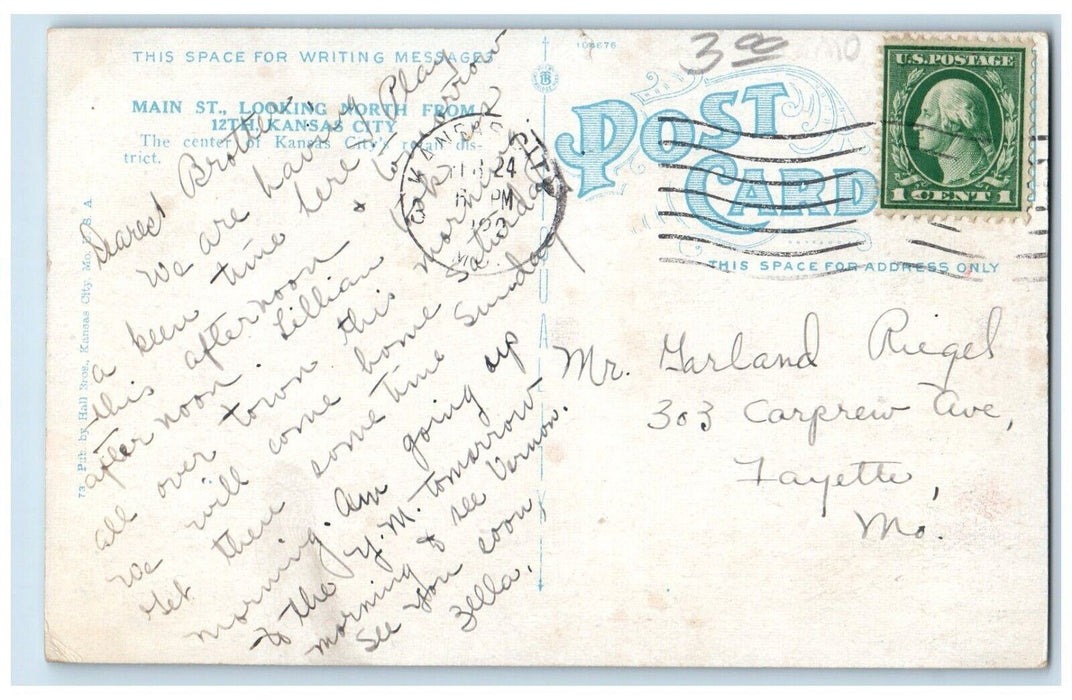 THIS SPACE FOR WRITING MESSAGES
MAIN ST., LOOKING NORTH FROM
12TH, KANSAS CITY
The center of Kansas City's retail dis-
trict.
73 Pub. by Hall Bros., Kansas City, Mo. U. S. A.
Dearest Brother,
We are having
a keen time here. Play
this afternoon & tomorrow
afternoon. Lillian took us
all over town this morning.
we will come home Saturday
get there some time Sunday
morning. Am going up
to the Y. M. tomorrow
morning & see Vernon.
See you soon
Zella.
108676
3 00
MO
POST
CARD
THIS SPACE FOR ADDRESS ONLY
KANSAS CITY
24
PM
MO.
U.S. POSTAGE
1 CENT 1
Mr. Garland Riegel
303 Carprew Ave,
Fayette,
Mo.